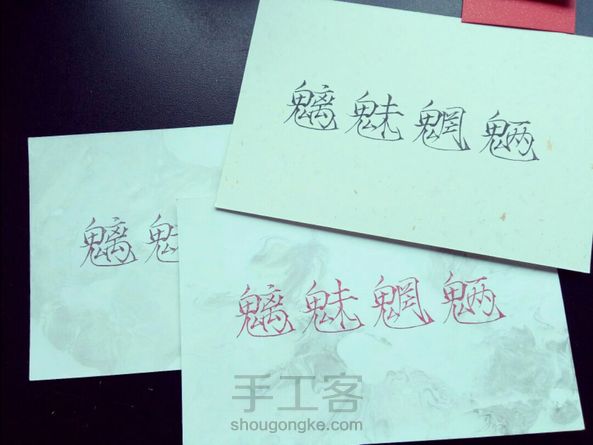 魑魅魍魎
魑
魑魅魍魎
手工客
shougongke.com